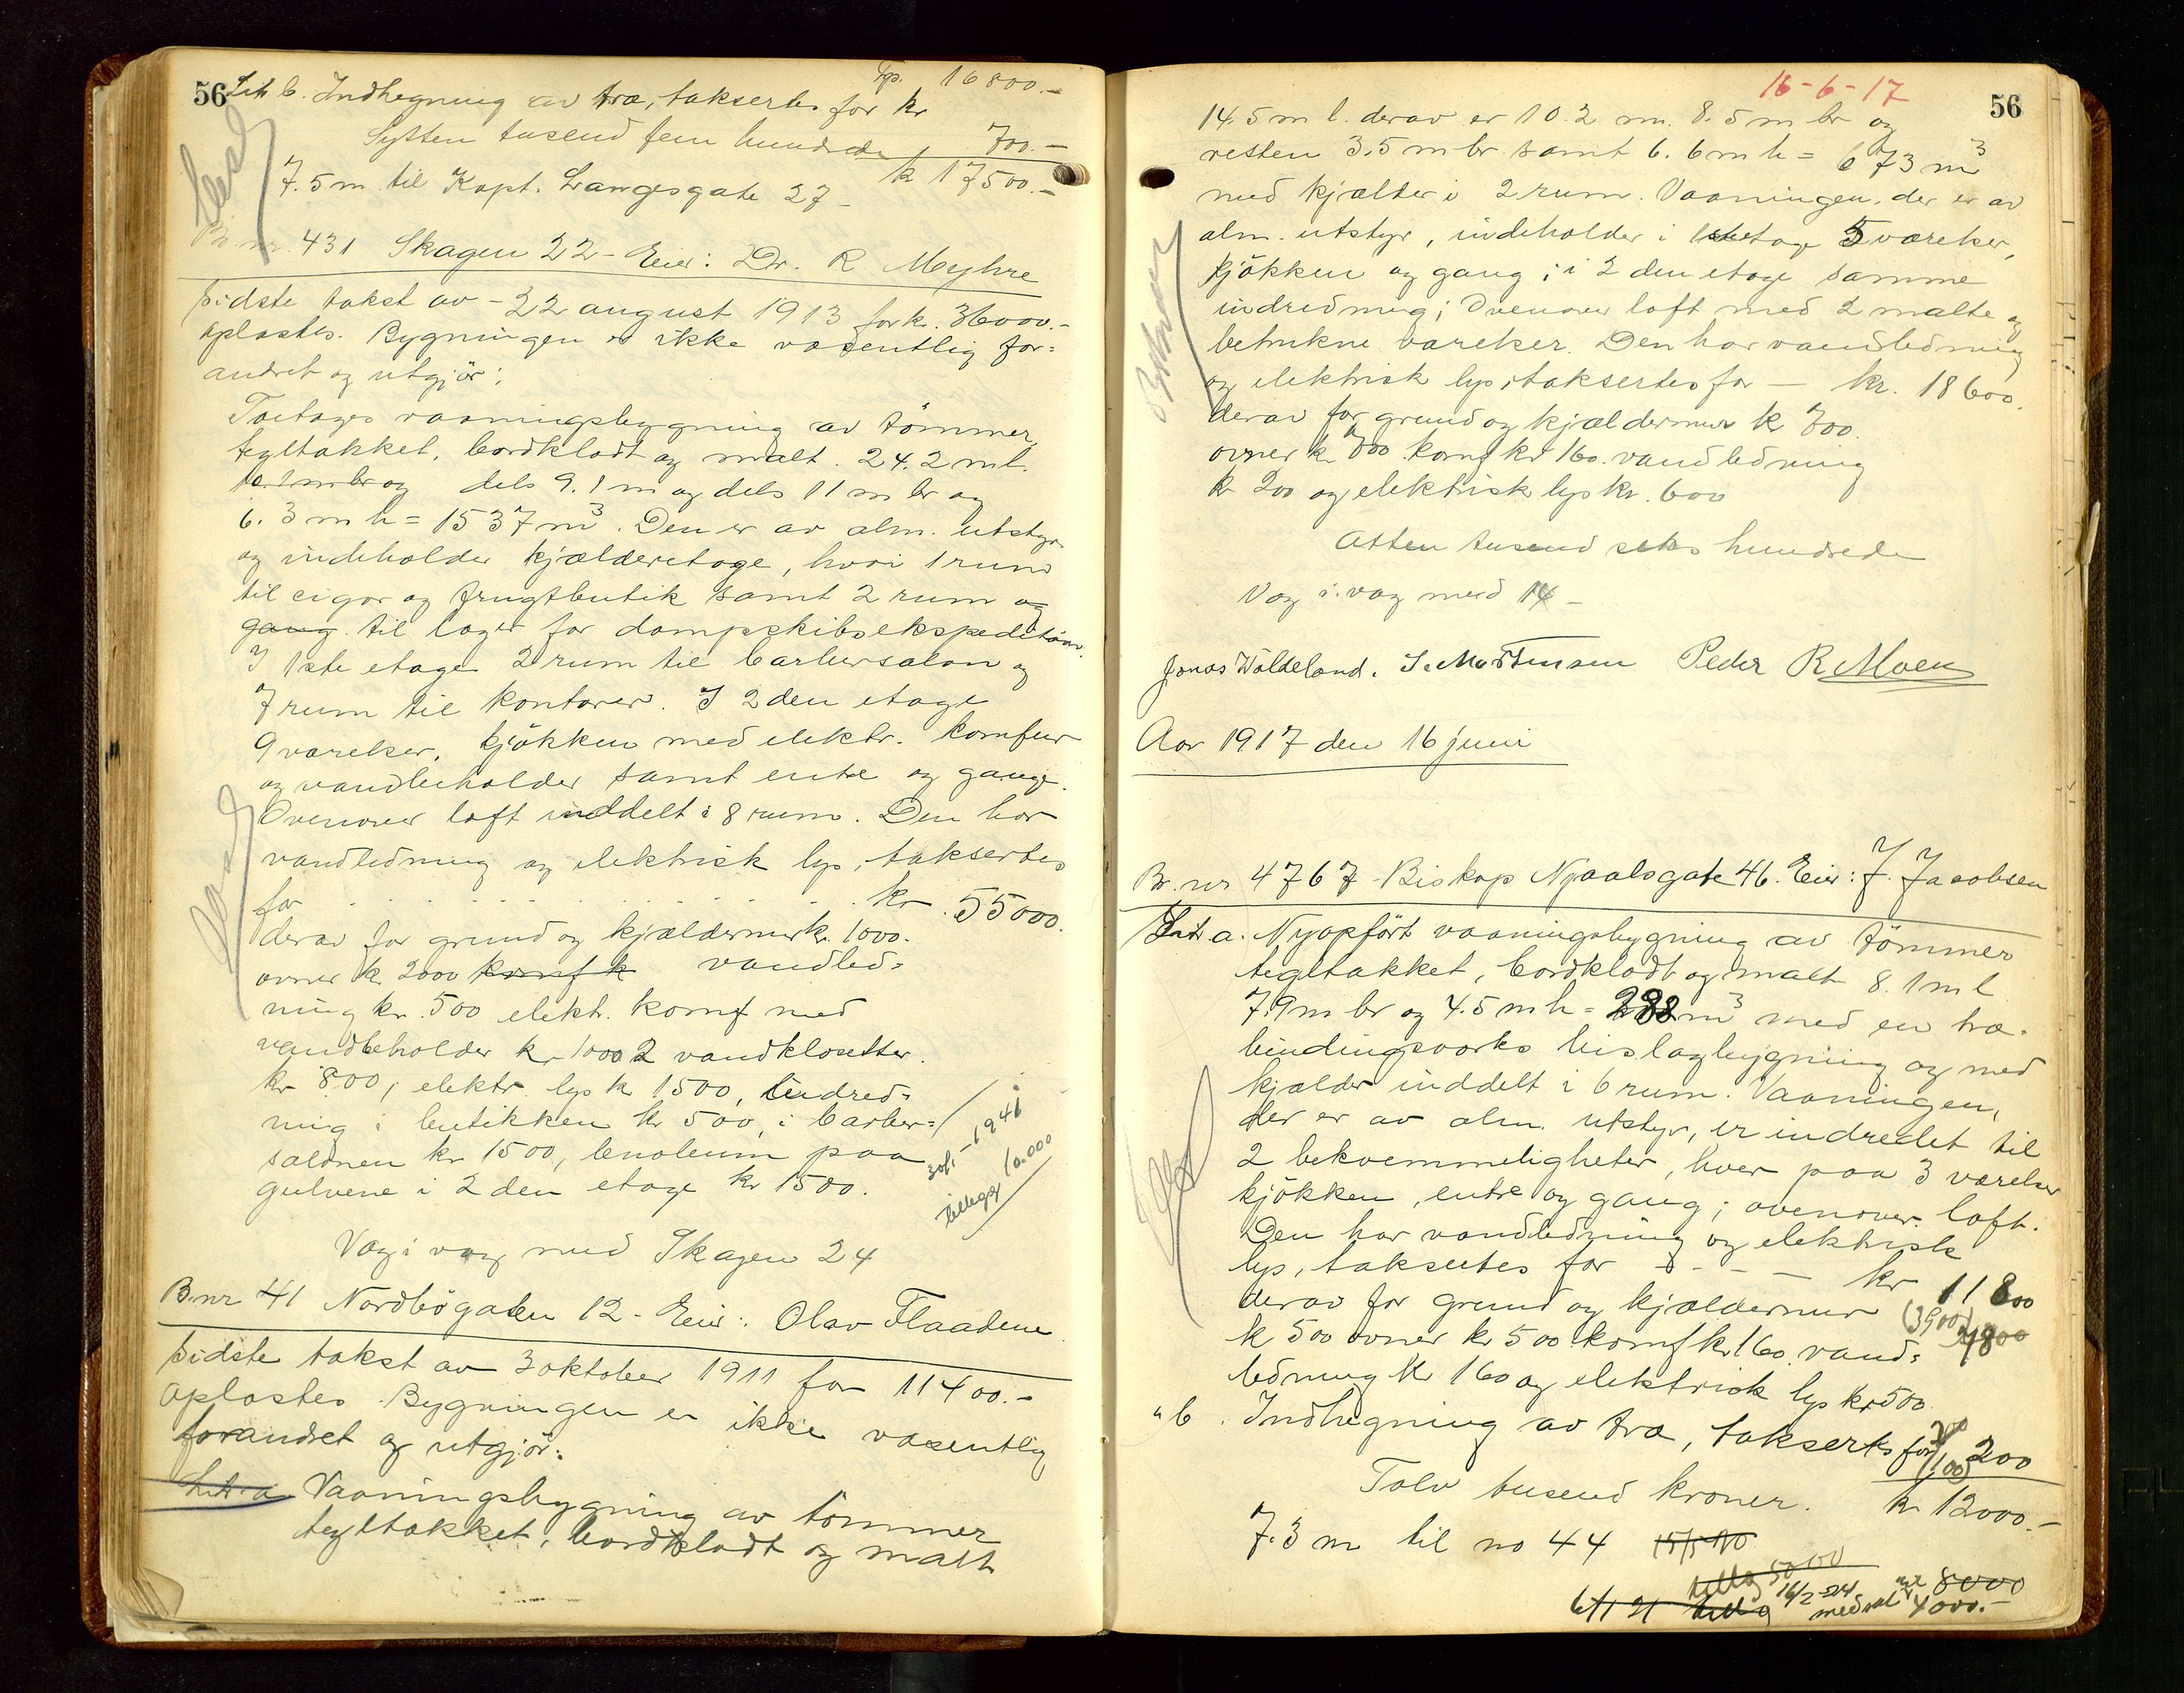 56
Tp. 16800.-
Lit b. Indhegning av træ, taksertes for kr
700.-
Sytten tusend fem hundrede
kr 17500.-
7.5 m til Kapt. Langesgate 27 -
Br. nr. 431 Skagen 22 - Eier: Dr. R Myhre
Sidste takst av - 22 august 1913 for kr. 36000.-
oplæstes. Bygningen er ikke væsentlig for=
andret og utgjør:
Toetages vaaningsbygning av tömmer,
tegltækket, bordklædt og malt. 24.2 m l.
br og dels 9.1 m og dels 11 m br og
6.3 m h = 1537 m³. Den er av alm. utstyr
og indeholder kjælderetage, hvori 1 rum
til cigar og frugtbutik samt 2 rum og
gang til lager for dampskibsekspedition.
I 1ste etage 2 rum til barbersalon og
7 rum til kontorer. I 2 den etage
9 værelser, kjökken med elektr. komfur
og vandbeholder samt entre og gange.
Ovenover loft inddelt i 8 rum. Den har
vandledning og elektrisk lys, taksertes
for . . . . . . . . . . kr. 55000.
derav for grund og kjældermur kr. 1000.
ovner kr 2000 komf k vandled=
ning kr. 500 elektr. komf med
vandbeholder kr 1000 2 vandklosetter
kr 800, elektr. lys kr 1500, Indred=
ning i butikken kr 500, i barber=
salonen kr 1500, lenoleum paa
gulvene i 2 den etage kr 1500.
1941
tillegg 10.000
Væg i væg med Skagen 24
B.nr 41 Nordbögaten 12 - Eier: Olav Flaadene
Sidste takst av 3 oktober 1911 for 11400.-
oplæstes. Bygningen er ikke væsentlig
forandret og utgjör:
Lit. a Vaaningsbygning av tömmer
tegltækket, bordklædt og malt
16-6-17
56
14.5 m l. derav er 10.2 m. 8.5 m br og
resten 3.5 m br samt 6.6 m h = 673 m³
med kjælder i 2 rum. Vaaningen, der er av
alm. utstyr, indeholder i 1ste etage 5 værelser,
kjökken og gang; i 2 den etage samme
indredning; Ovenover loft med 2 malte og
betrukne værelser. Den har vandledning
og elektrisk lys, taksertes for — kr. 18600.
derav for grund og kjældermur kr 700.
ovner kr 700. komf kr 160. vandledning
kr 200 og elektrisk lys kr. 600
Atten tusend seks hundrede
Væg i væg med 14 -
Jonas Wåldeland. S. Mortensen Peder R Moen
Aar 1917 den 16 juni
Br. nr 4767 - Biskop Njaalsgate 46. Eier: J. Jacobsen
Lit. a. Nyopfört vaaningsbygning av tömmer
tegltækket, bordklædt og malt 8.1 m l
7.9 m br og 4.5 m h = 288 m³ med en træ-
bindingsværks bislagbygning og med
kjælder inddelt i 6 rum. Vaaningen,
der er av alm. utstyr, er indredet til
2 bekvemmeligheter, hver paa 3 værelser
kjökken, entre og gang; ovenover loft.
Den har vandledning og elektrisk
lys, taksertes for - - - — kr 11800
derav for grund og kjældermur (3900)
kr 500 ovner kr 500. komf kr 160. vand= 7800
ledning kr 160 og elektrisk lys kr 500.
" b. Indhegning av træ, taksertes for 200
(100)
Tolv tusend kroner. kr 12000.-
7.3 m til no 44
tillæg 5000
8000
16/2-24
4000.-